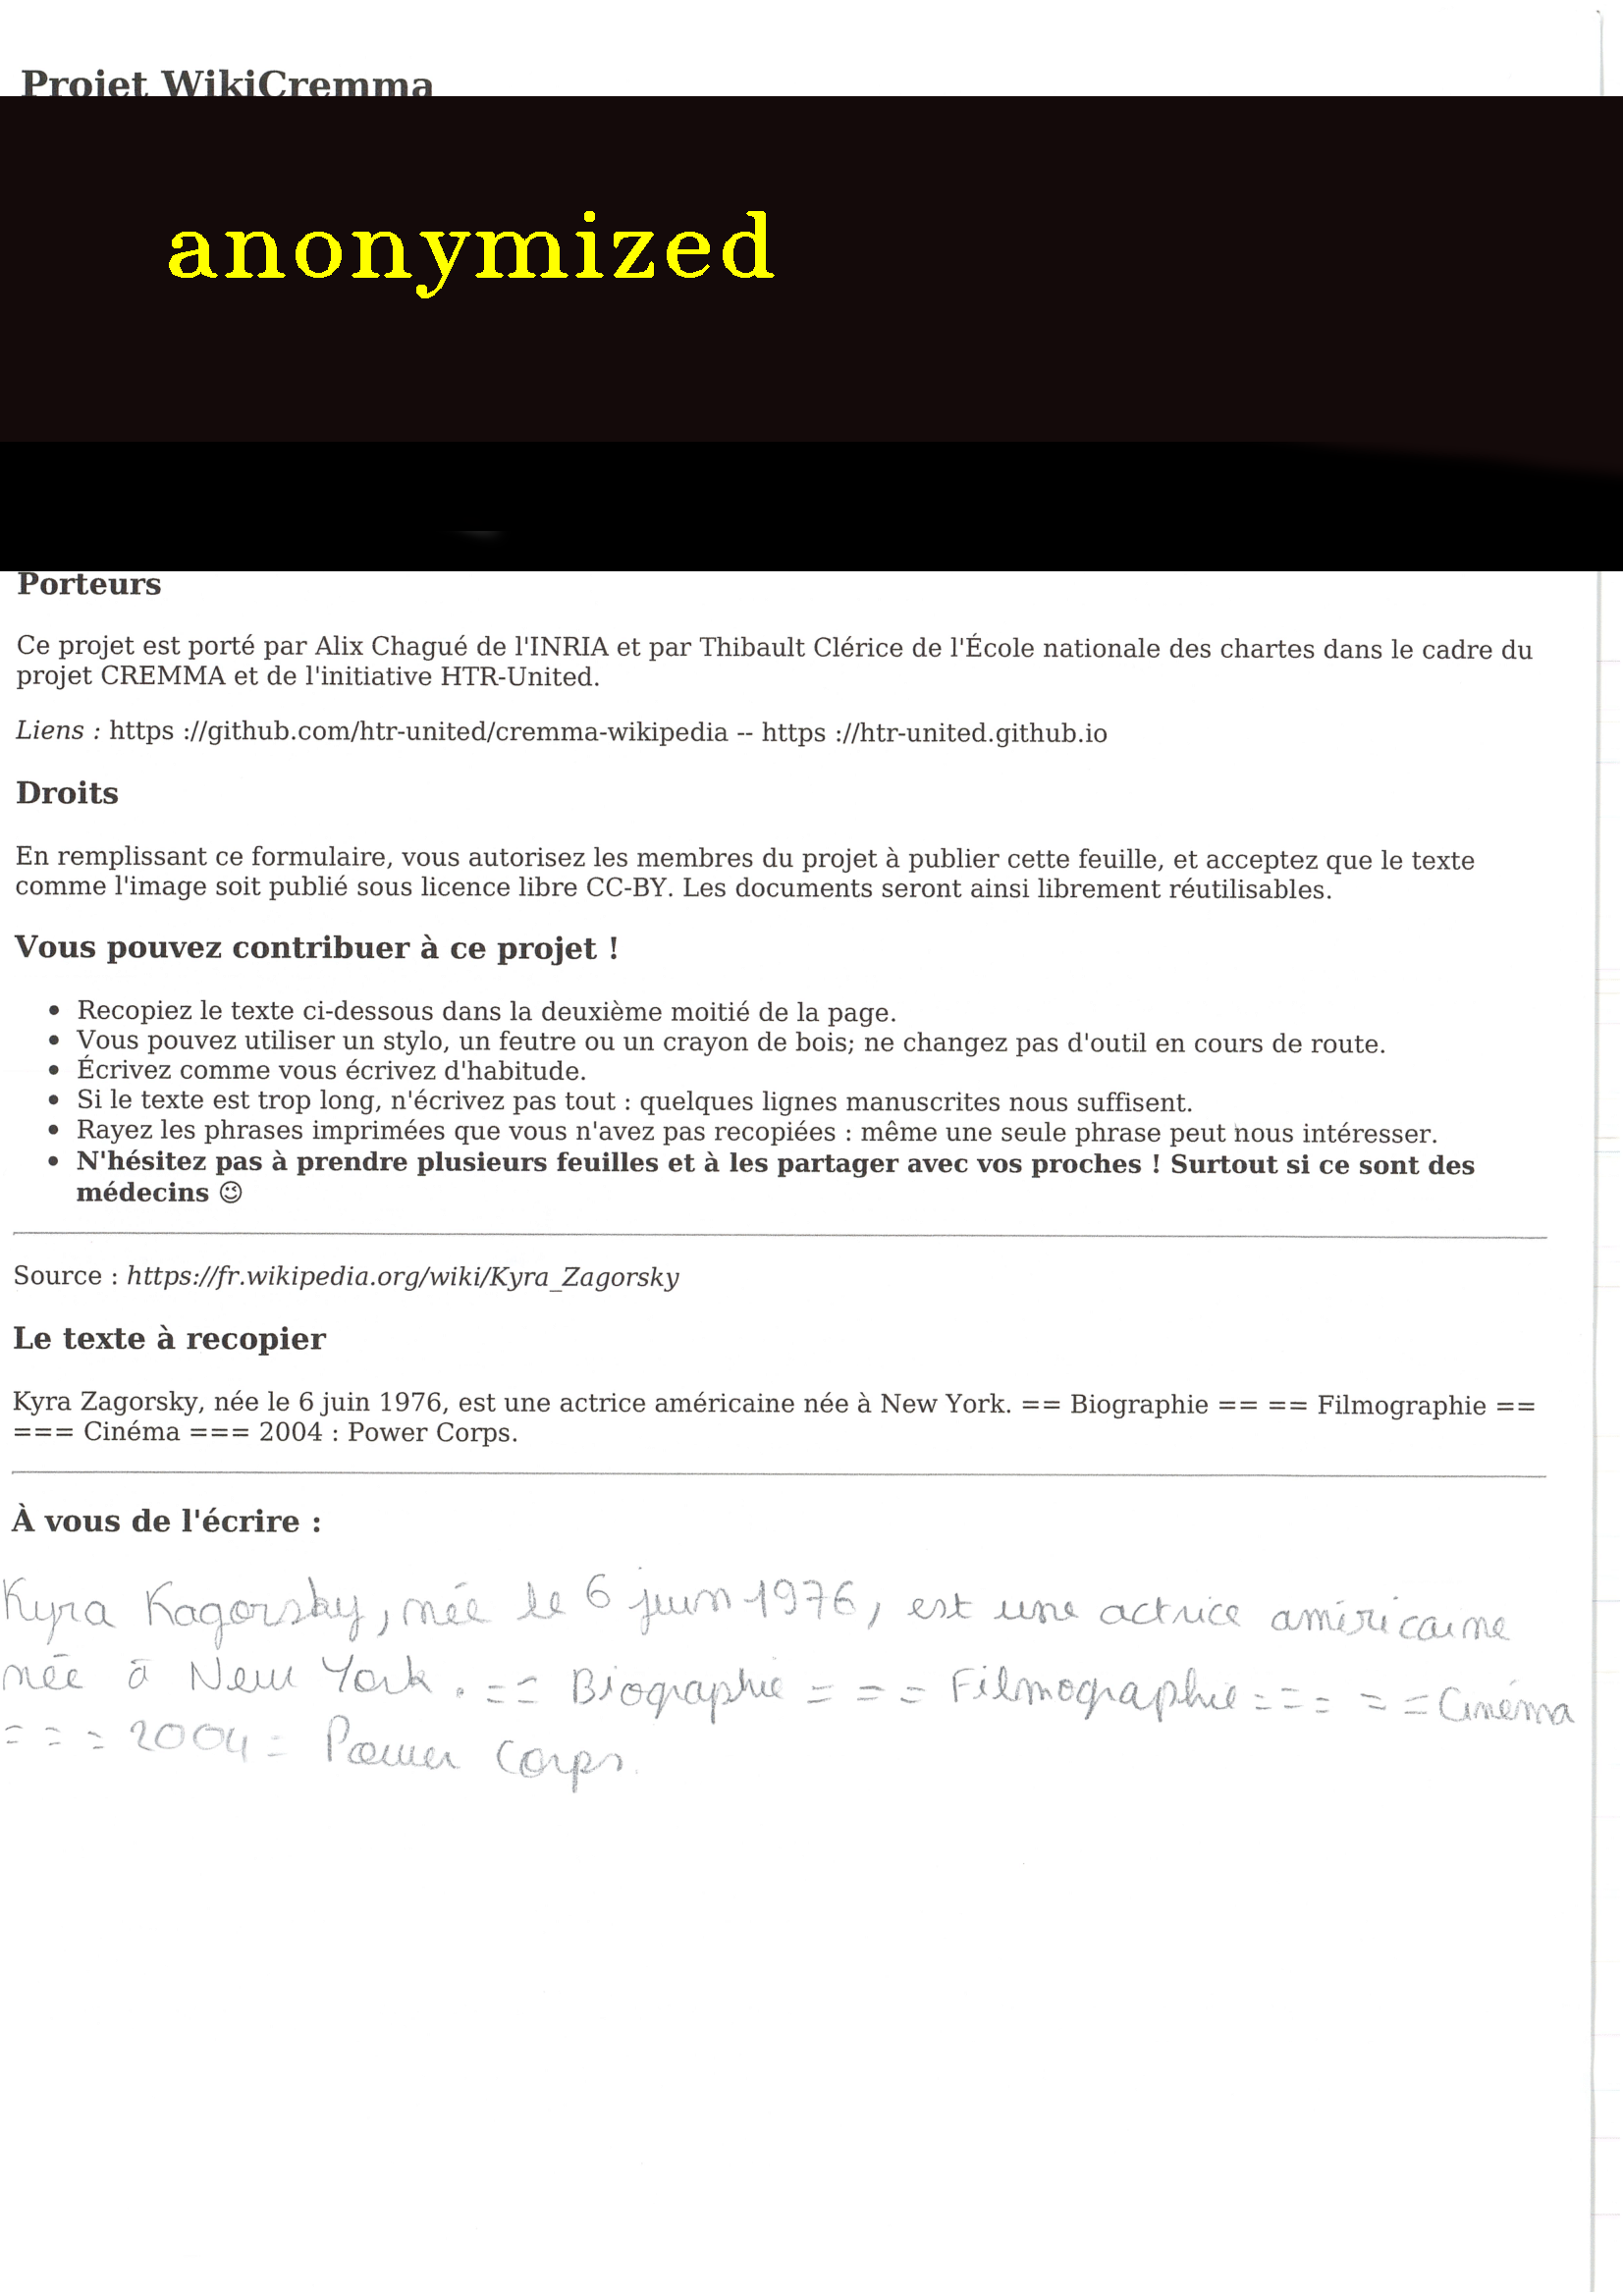 Projet WikiCremma
anonymized
Porteurs
Ce projet est porté par Alix Chagué de l'INRIA et par Thibault Clérice de l'École nationale des chartes dans le cadre du
projet CREMMA et de l'initiative HTR-United.
Liens : https ://github.com/htr-united/cremma-wikipedia -- https ://htr-united.github.io
Droits
En remplissant ce formulaire, vous autorisez les membres du projet à publier cette feuille, et acceptez que le texte
comme l'image soit publié sous licence libre CC-BY. Les documents seront ainsi librement réutilisables.
Vous pouvez contribuer à ce projet !
• Recopiez le texte ci-dessous dans la deuxième moitié de la page.
• Vous pouvez utiliser un stylo, un feutre ou un crayon de bois; ne changez pas d'outil en cours de route.
• Écrivez comme vous écrivez d'habitude.
• Si le texte est trop long, n'écrivez pas tout : quelques lignes manuscrites nous suffisent.
• Rayez les phrases imprimées que vous n'avez pas recopiées : même une seule phrase peut nous intéresser.
• N'hésitez pas à prendre plusieurs feuilles et à les partager avec vos proches ! Surtout si ce sont des
médecins 😉
Source : https://fr.wikipedia.org/wiki/Kyra_Zagorsky
Le texte à recopier
Kyra Zagorsky, née le 6 juin 1976, est une actrice américaine née à New York. == Biographie == == Filmographie ==
=== Cinéma === 2004 : Power Corps.
À vous de l'écrire :
Kyra Kagorsky, née le 6 juin 1976, est une actrice américaine
née à New York. == Biographie = = = Filmographie = = = = = Cinéma
= = = 2004 = Power Corps.